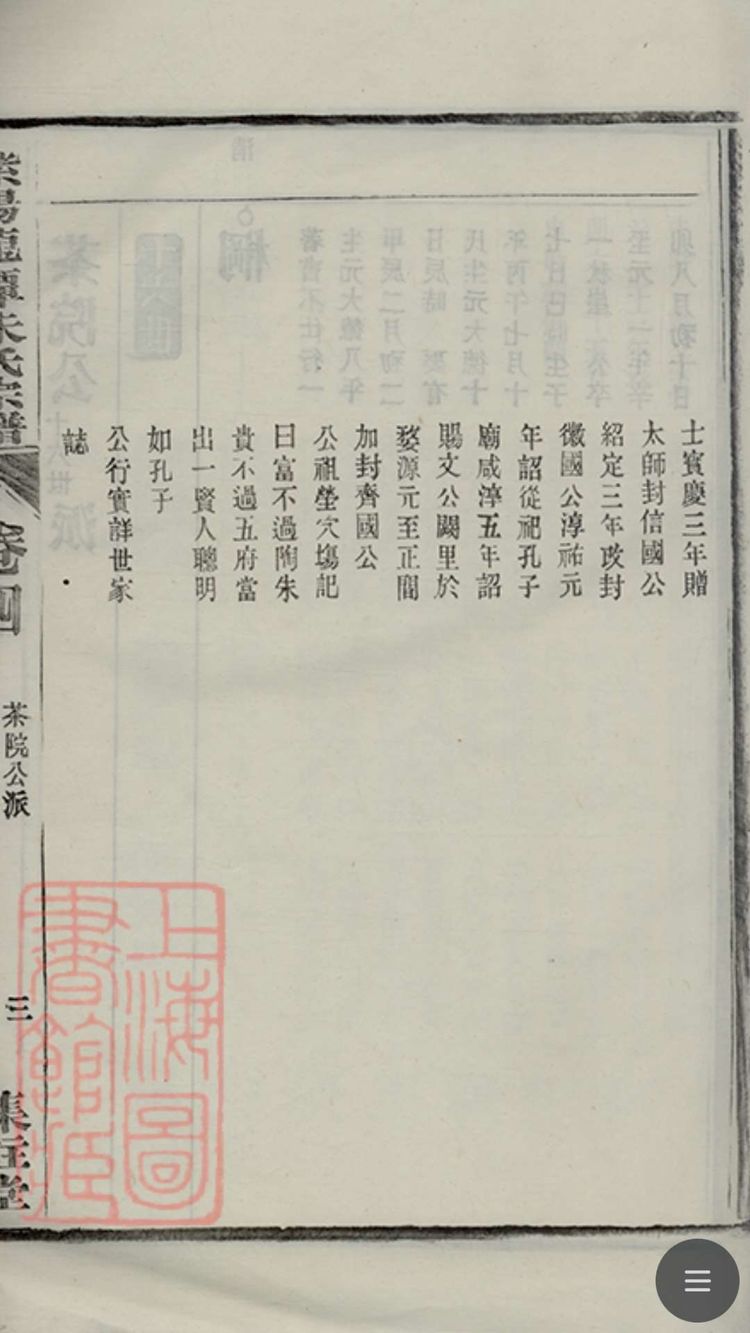 士寶慶三年贈
太師封信國公
紹定三年改封
徽國公淳祐元
年詔從祀孔子
廟咸淳五年詔
賜文公闕里於
婺源元至正間
加封齊國公
公祖塋穴塲記
曰富不過陶朱
貴不過五府當
出一賢人聰明
如孔子
公行實詳世家
誌
紫陽龍潭朱氏宗譜
卷四
茶院公派
三
上海圖
書館